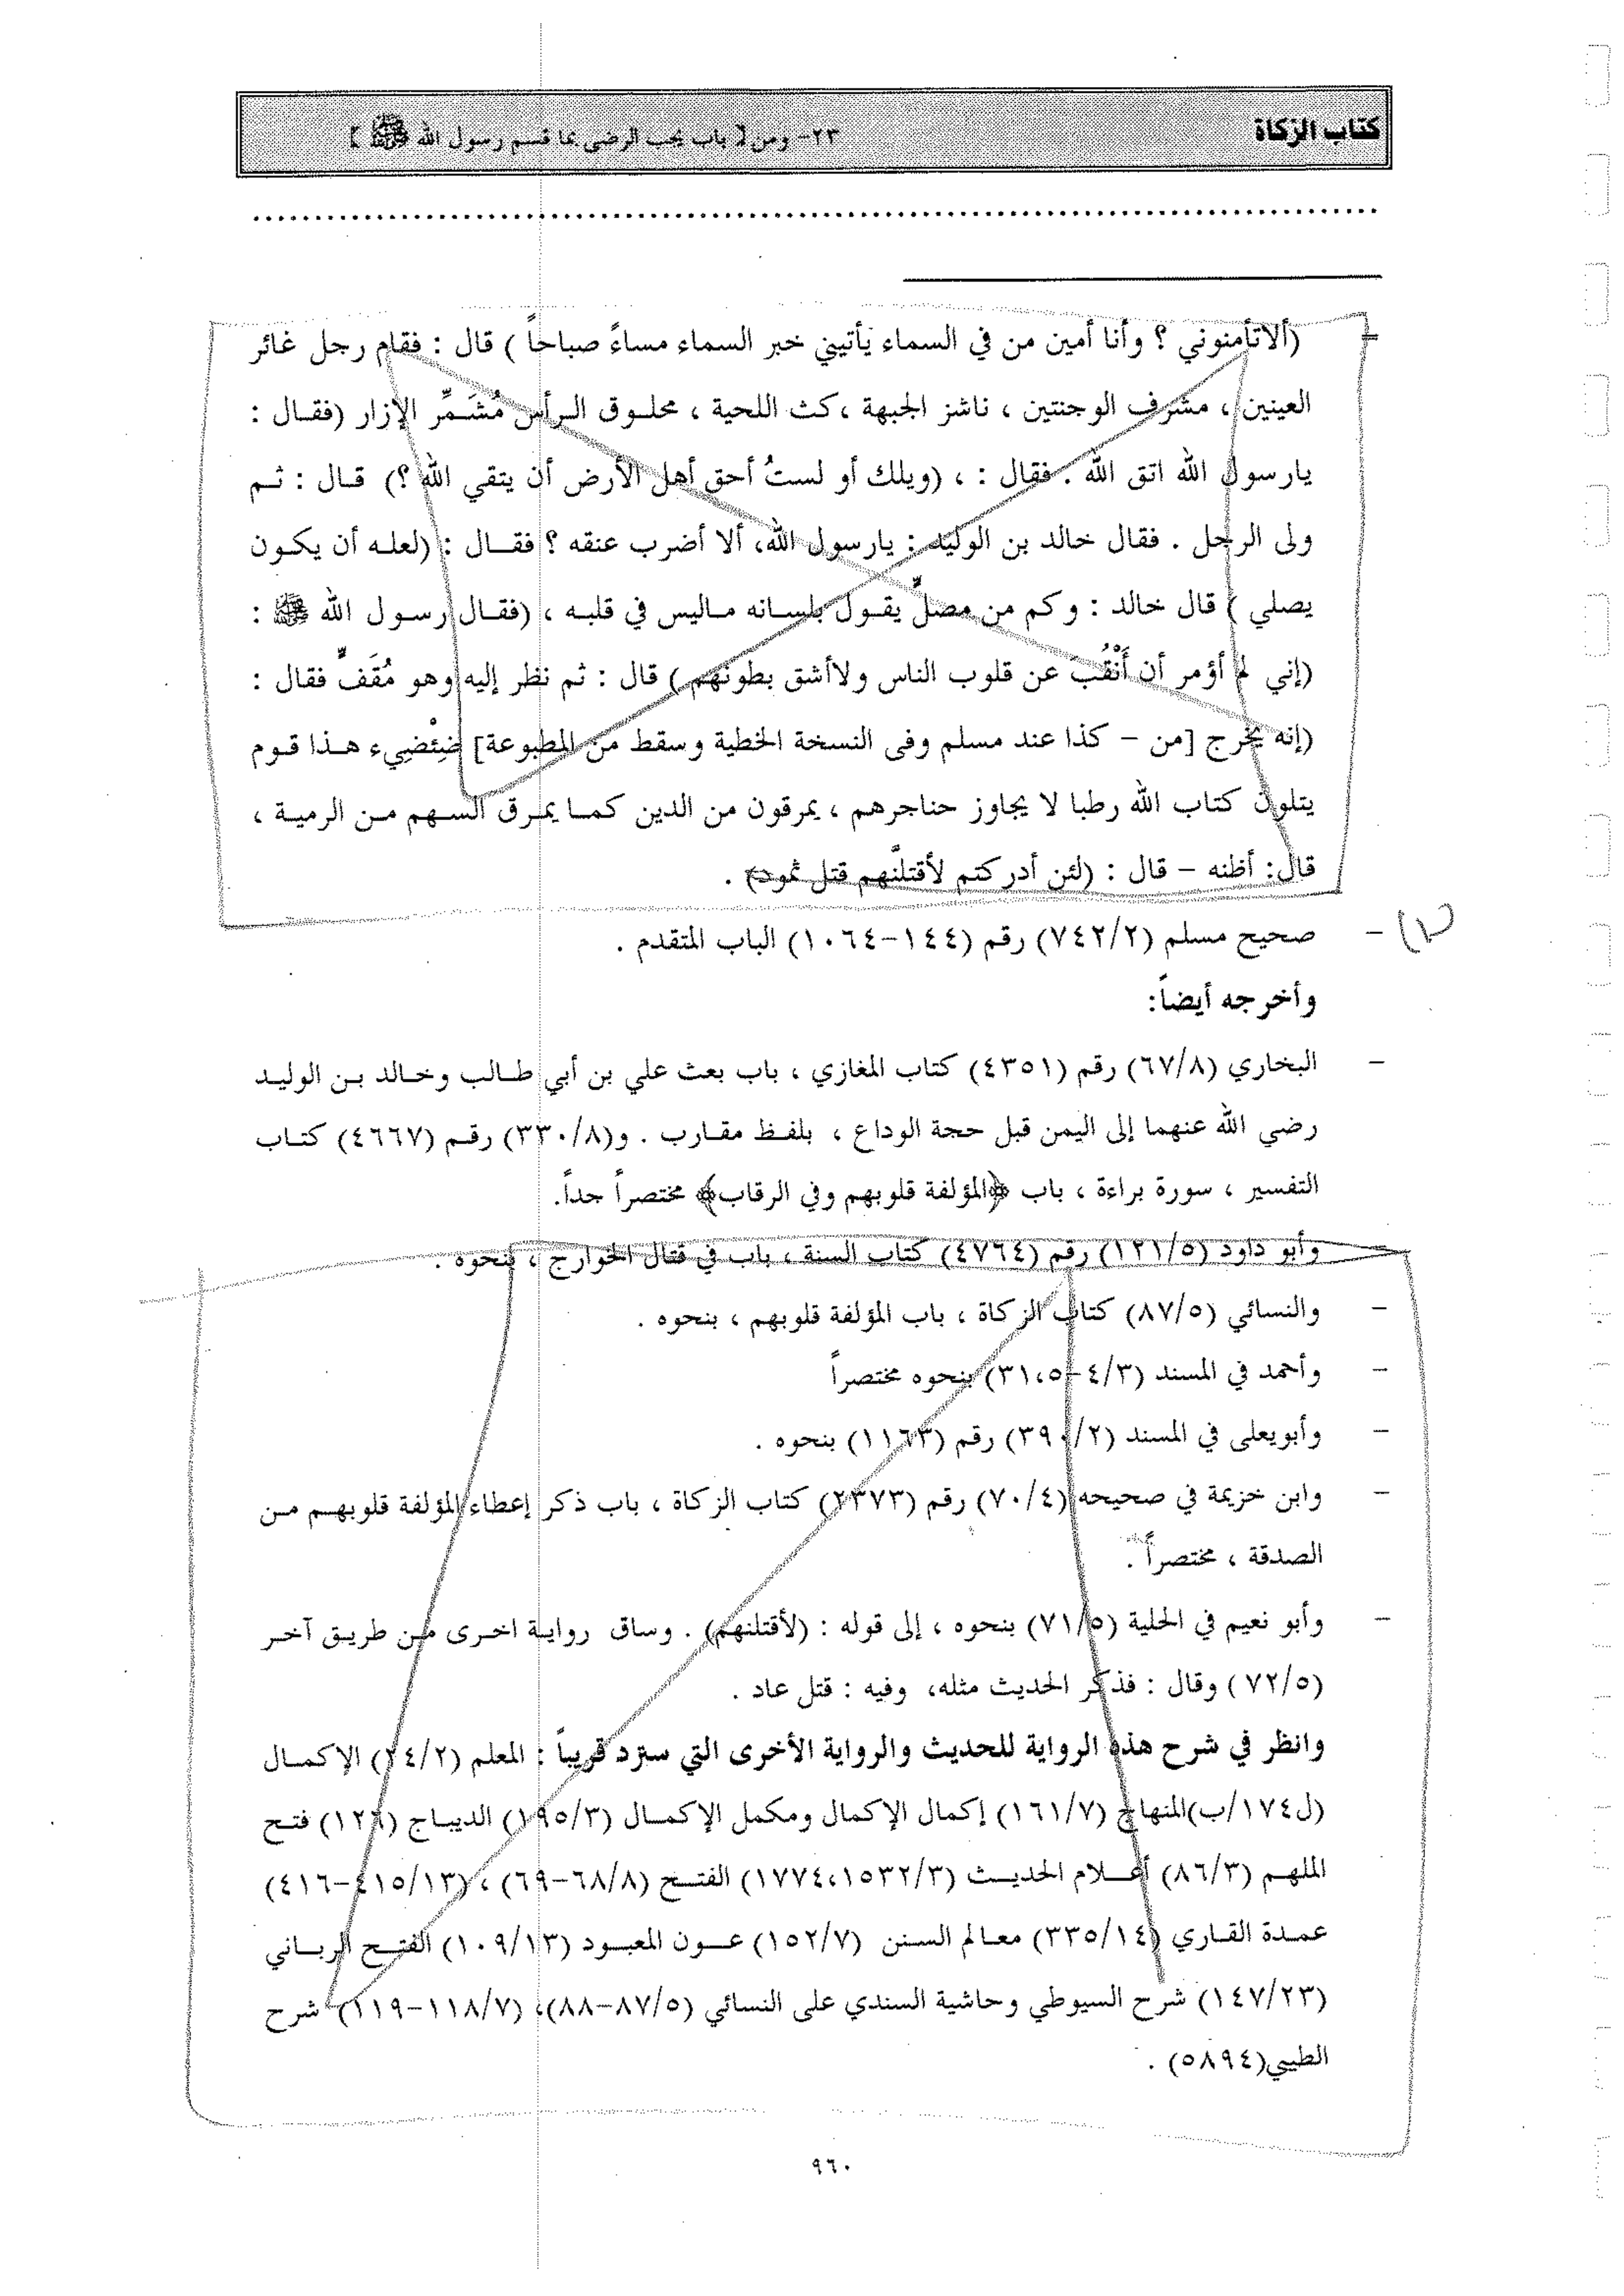 كتاب الزكاة
٢٣- ومن [ باب يجب الرضى بما قسم رسول الله ﷺ ]
(ألاتأمنوني ؟ وأنا أمين من في السماء يأتيني خبر السماء مساءً صباحاً ) قال : فقام رجل غائر
العينين ، مشرف الوجنتين ، ناشز الجبهة ، كث اللحية ، محلوق الرأس مُشَمِّر الإزار (فقال :
يارسول الله اتق الله . فقال : ، (ويلك أو لستُ أحق أهل الأرض أن يتقي الله ؟) قال : ثم
ولى الرجل . فقال خالد بن الوليد : يارسول الله، ألا أضرب عنقه ؟ فقال : (لعله أن يكون
يصلي ) قال خالد : وكم من مصلٍّ يقول بلسانه ماليس في قلبه ، (فقال رسول الله ﷺ :
(إني لم أؤمر أن أَنْقُبَ عن قلوب الناس ولاأشق بطونهم ) قال : ثم نظر إليه وهو مُقَفٍّ فقال :
(إنه يخرج [من - كذا عند مسلم وفى النسخة الخطية وسقط من المطبوعة] ضِئْضِيء هذا قوم
يتلون كتاب الله رطبا لا يجاوز حناجرهم ، يمرقون من الدين كما يمرق السهم من الرمية ،
قال: أظنه - قال : (لئن أدركتم لأقتلنّهم قتل ثمود) .
(١) - صحيح مسلم (٧٤٢/٢) رقم (١٤٤-١٠٦٤) الباب المتقدم .
وأخرجه أيضاً:
- البخاري (٦٧/٨) رقم (٤٣٥١) كتاب المغازي ، باب بعث علي بن أبي طالب وخالد بن الوليد
رضي الله عنهما إلى اليمن قبل حجة الوداع ، بلفظ مقارب . و(٣٣٠/٨) رقم (٤٦٦٧) كتاب
التفسير ، سورة براءة ، باب ﴿المؤلفة قلوبهم وفي الرقاب﴾ مختصراً جداً.
- وأبو داود (١٢١/٥) رقم (٤٧٦٤) كتاب السنة ، باب في قتال الخوارج ، بنحوه .
- والنسائي (٨٧/٥) كتاب الزكاة ، باب المؤلفة قلوبهم ، بنحوه .
- وأحمد في المسند (٤/٣-٣١،٥) بنحوه مختصراً
- وأبويعلى في المسند (٣٩٠/٢) رقم (١١٦٣) بنحوه .
- وابن خزيمة في صحيحه (٧٠/٤) رقم (٢٣٧٣) كتاب الزكاة ، باب ذكر إعطاء المؤلفة قلوبهم من
الصدقة ، مختصراً .
- وأبو نعيم في الحلية (٧١/٥) بنحوه ، إلى قوله : (لأقتلنهم) . وساق رواية اخرى من طريق آخر
(٧٢/٥ ) وقال : فذكر الحديث مثله، وفيه : قتل عاد .
وانظر في شرح هذه الرواية للحديث والرواية الأخرى التي سترد قريباً : المعلم (٢٤/٢) الإكمال
(ل١٧٤/ب)المنهاج (١٦١/٧) إكمال الإكمال ومكمل الإكمال (١٩٥/٣) الديباج (١٢٦) فتح
الملهم (٨٦/٣) أعلام الحديث (١٧٧٤،١٥٣٢/٣) الفتح (٦٨/٨-٦٩) ، (٤١٥/١٣-٤١٦)
عمدة القاري (٣٣٥/١٤) معالم السنن (١٥٢/٧) عون المعبود (١٠٩/١٣) الفتح الرباني
(١٤٧/٢٣) شرح السيوطي وحاشية السندي على النسائي (٨٧/٥-٨٨)، (١١٨/٧-١١٩) شرح
الطيبي(٥٨٩٤) .
٩٦٠